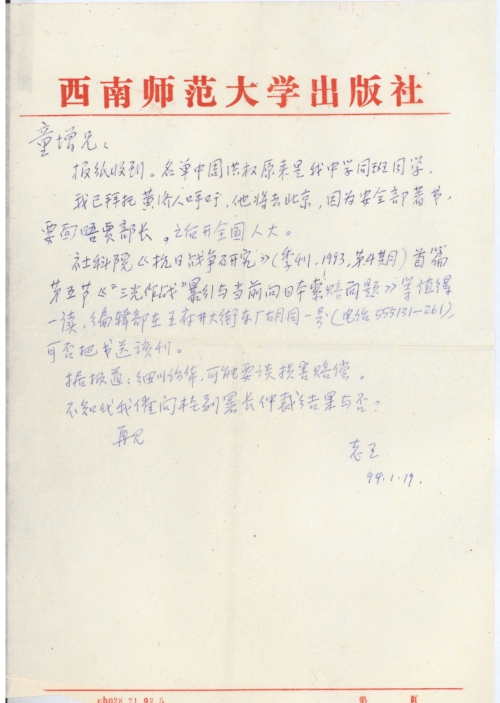 西南师范大学出版社
童增兄：
报纸收到。名单中周洪权原来是我中学同班同学，
我已拜托黄济人呼吁，他将去北京，因为安全部著书，
要面晤贾部长。之后开全国人大。
社科院《抗日战争研究》(季刊，1993，第4期)首篇
第五节《"三光作战"暴行与当前向日本索赔问题》等值得
一读，编辑部在王府井大街东厂胡同一号(电话555131-261)，
可否把书送该刊。
据报道：细川访华，可能要谈损害赔偿。
不知代我催问 署长仲裁结果与否？
再见
志
94.1.19.
cb028.21.93.5
第 页